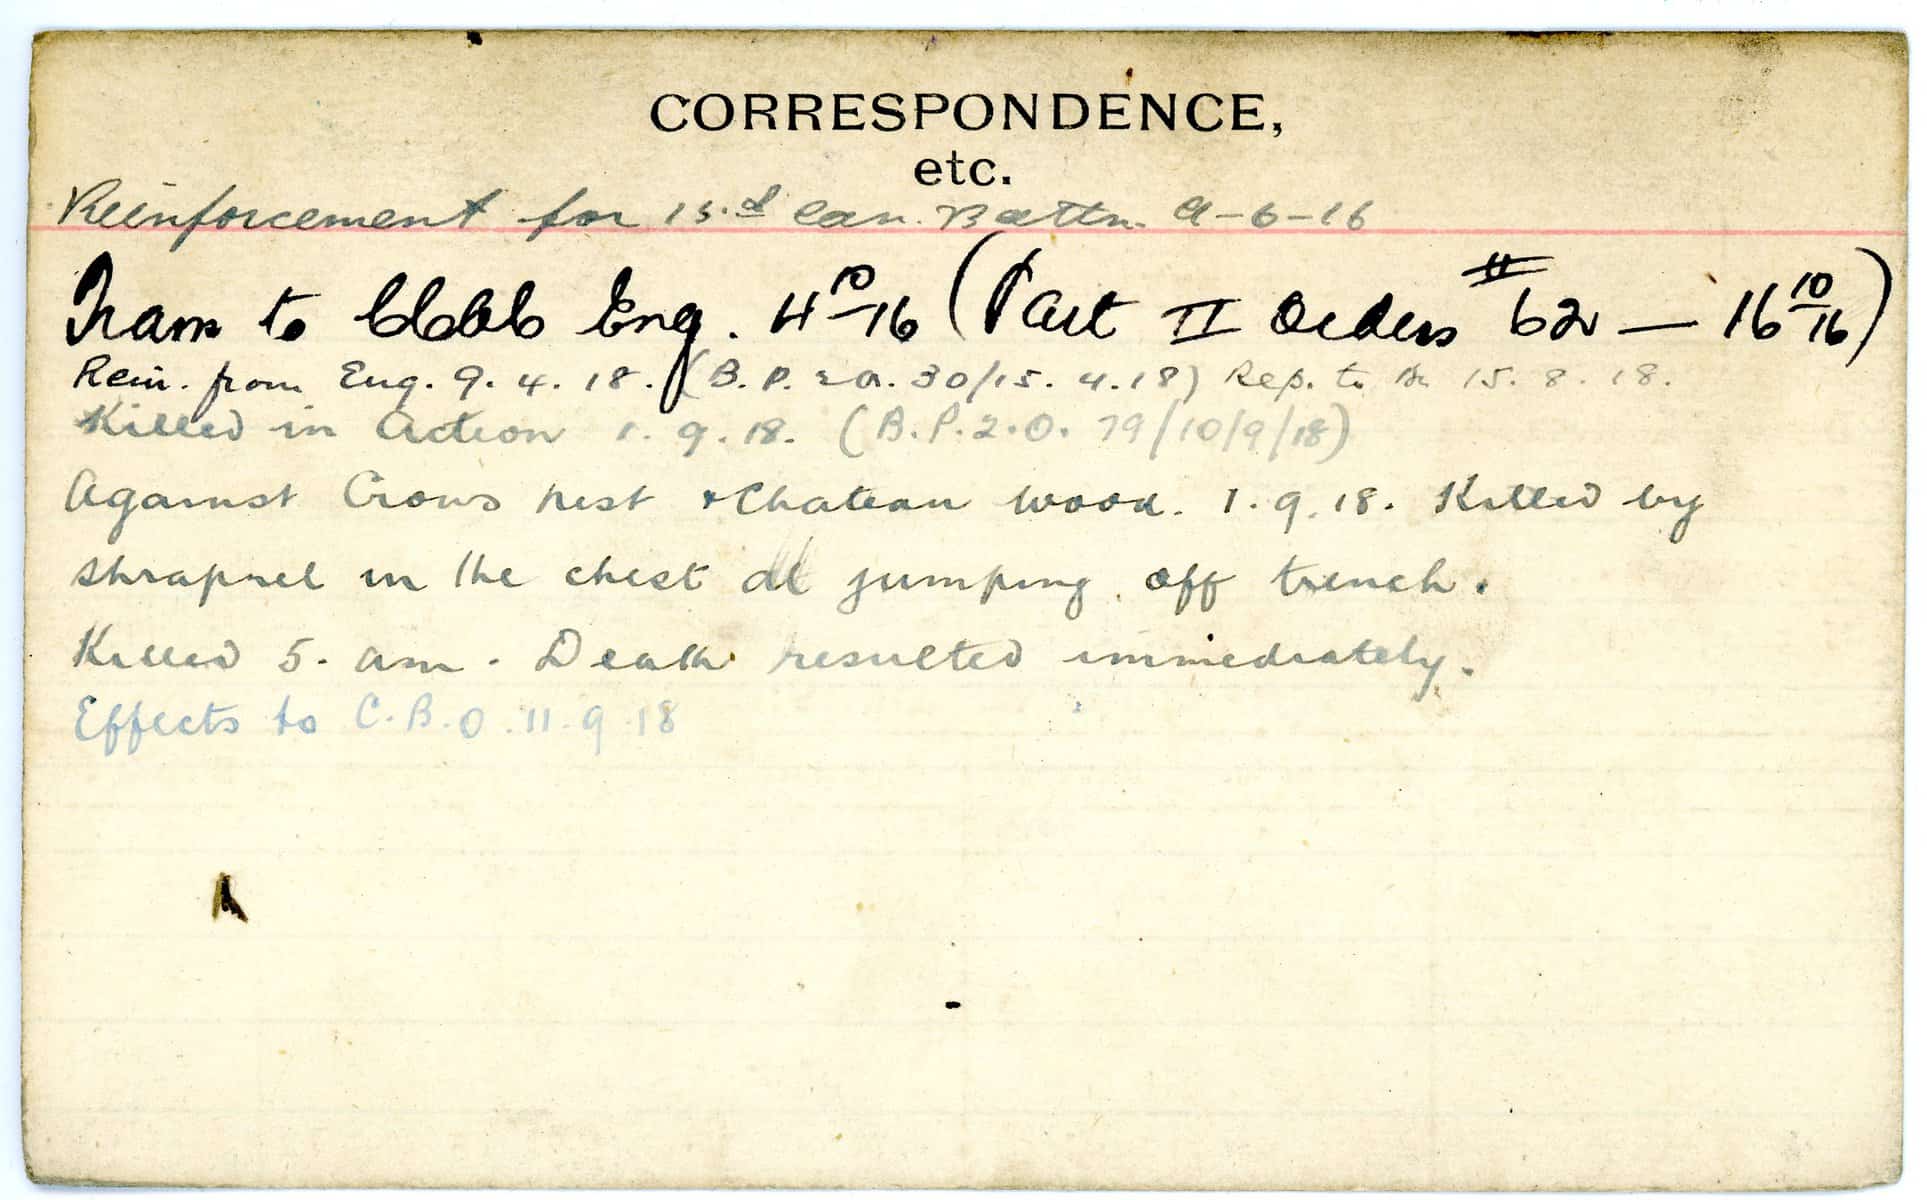 CORRESPONDENCE,
etc.
Reinforcement for 15.d Can. Battn. 9-6-16
Trans to Eng. 4 10/16 (Part II Orders # 62 — 16 10/16)
Rein. from Eng. 9. 4. 18. (B. P. 2 O. 30/15. 4. 18) Rep. to Bn 15. 8. 18.
Killed in Action 1. 9. 18. (B.P.2.O. 79/10/9/18)
Against Crows nest + Chateau Wood. 1. 9. 18. Killed by
shrapnel in the chest at jumping off trench.
Killed 5. am. Death resulted immediately.
Effects to C.B.O. 11. 9. 18